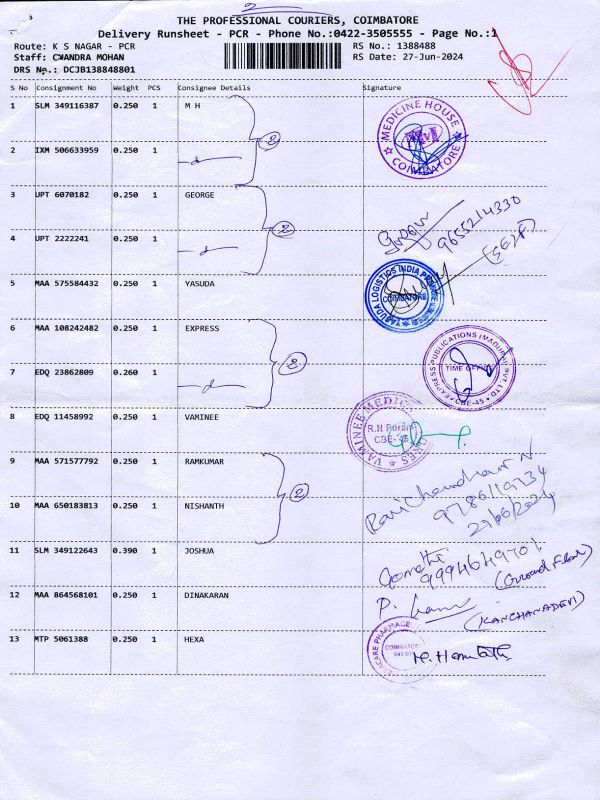 2
THE PROFESSIONAL COURIERS, COIMBATORE
Delivery Runsheet - PCR - Phone No.:0422-3505555 - Page No.:1
Route: K S NAGAR - PCR RS No.: 1388488
Staff: CHANDRA MOHAN RS Date: 27-Jun-2024
DRS No.: DCJB138848801
S No Consignment No Weight PCS Consignee Details Signature
1 SLM 349116387 0.250 1 M H
MEDICINE HOUSE
COIMBATORE
2
2 IXM 506633959 0.250 1
3 UPT 6070182 0.250 1 GEORGE
9655214330
2
4 UPT 2222241 0.250 1
(SELF)
5 MAA 575584432 0.250 1 YASUDA
YASUDA LOGISTICS INDIA PRIVATE
COIMBATORE
6 MAA 108242482 0.250 1 EXPRESS
EXPRESS PUBLICATIONS (MADURAI) PVT LTD
TIME OFFICE
CBE-45
2
7 EDQ 23862809 0.260 1
8 EDQ 11458992 0.250 1 VAMINEE
VAMINEE MEDICAL STORES
CBE-45
9 MAA 571577792 0.250 1 RAMKUMAR
Ravichandhar N
9786119234
27/06/2024
2
10 MAA 650183813 0.250 1 NISHANTH
11 SLM 349122643 0.390 1 JOSHUA
Gomathi
9994649701
(Ground Floor)
12 MAA 864568101 0.250 1 DINAKARAN
(KANCHANADEVI)
13 MTP 5061388 0.250 1 HEXA
COIMBATORE